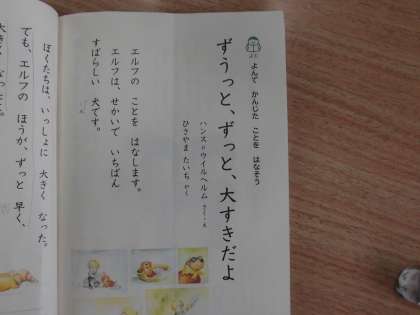 よんで かんじた ことを はなそう
ずうっと、ずっと、大すきだよ
ハンス=ウイルヘルム さく・え
ひさやま たいち やく
エルフの ことを はなします。
エルフは、せかいで いちばん
すばらしい 犬です。
ぼくたちは、いっしょに 大きく なった。
でも、エルフの ほうが、ずっと 早く、
大きく なったよ。